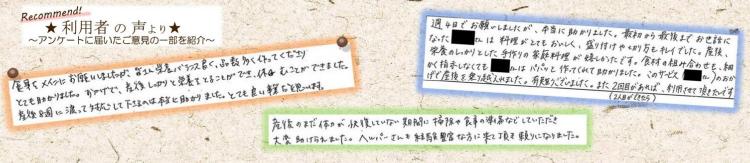 Recommend!
★利用者の声より★
～アンケートに届いたご意見の一部を紹介～
食事をメインにお願いしましたが、栄養バランス良く、品数多く作ってくださり
とても助かりました。おかげで、産後しっかりと栄養をとることができ、休むことができました。
産後8週に渡って対応して下さるのは本当に助かりました。とても良い制度だと思います。
週4日でお願いしましたが、本当に助かりました。最初から最後までお世話に
なった さんは料理がとてもおいしく、盛り付けや切り方もキレイでした。産後、
栄養のしっかりとした手作りの家庭料理が嬉しかったです。食材の組み合わせも、細
かく指示しなくても さんはパパッと作ってくれて助かりました。このサービス( さん)のおか
げで産後を乗り越えれました。有難うございました。また2回目があれば、利用させて頂きたいです
(2人目ができたら)
産後のまだ体力が快復していない期間に掃除や食事の準備などしていただき
大変助けられました。ヘルパーさんも経験豊富な方に来て頂き頼りになりました。